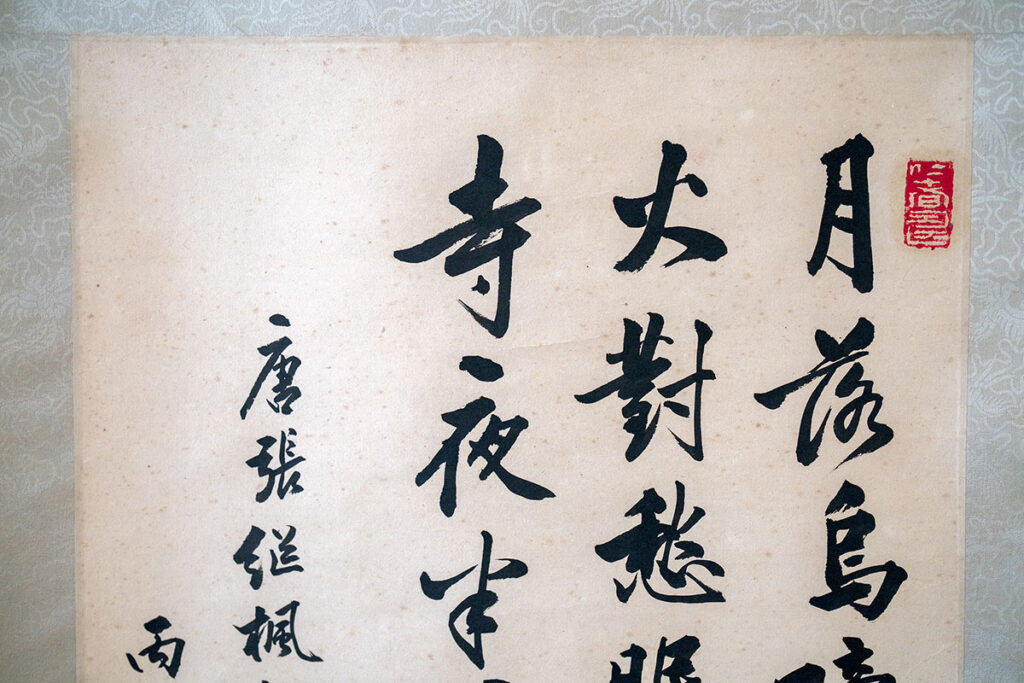 月落烏啼
火對愁眠
寺夜半
唐張继楓
丙